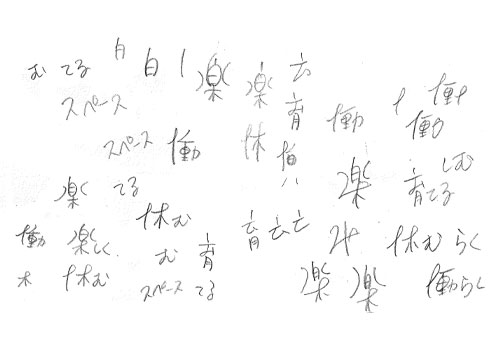 む てる 白 白 楽 楽 云
スペース 育 働 働
スペース 働 休 働
楽 てる 楽 しむ
育てる
休む
働 楽しく む 育 育 云 亡 休む らく
木 休む スペース てる 楽 楽 働らく